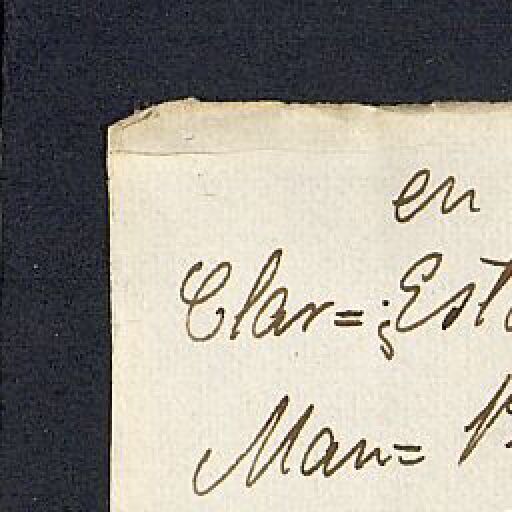 en
Clar= ¿Est
Man=